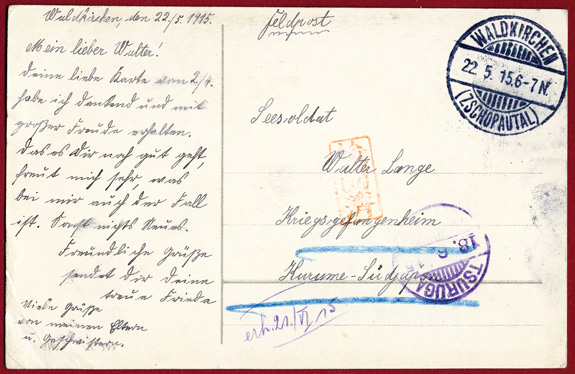 Waldkirchen, den 22/5. 1915.
Mein lieber Walter!
Deine liebe Karte vom 2/4.
habe ich dankend und mit
großer Freude erhalten.
Das es Dir noch gut geht,
freut mich sehr, was
bei mir auch der Fall
ist. Sonst nichts Neues.
Freundliche Grüße
sendet dir Deine
treue Frieda
Viele Grüße
von meinen Eltern
u. Geschwistern.
Feldpost
WALDKIRCHEN
22. 5. 15. 6-7 N.
(ZSCHOPAUTAL)
Seesoldat
Walter Lange
Kriegsgefangenheim
Kurume-Südjapan
18. 6.
TSURUGA
erh. 21./VI 15